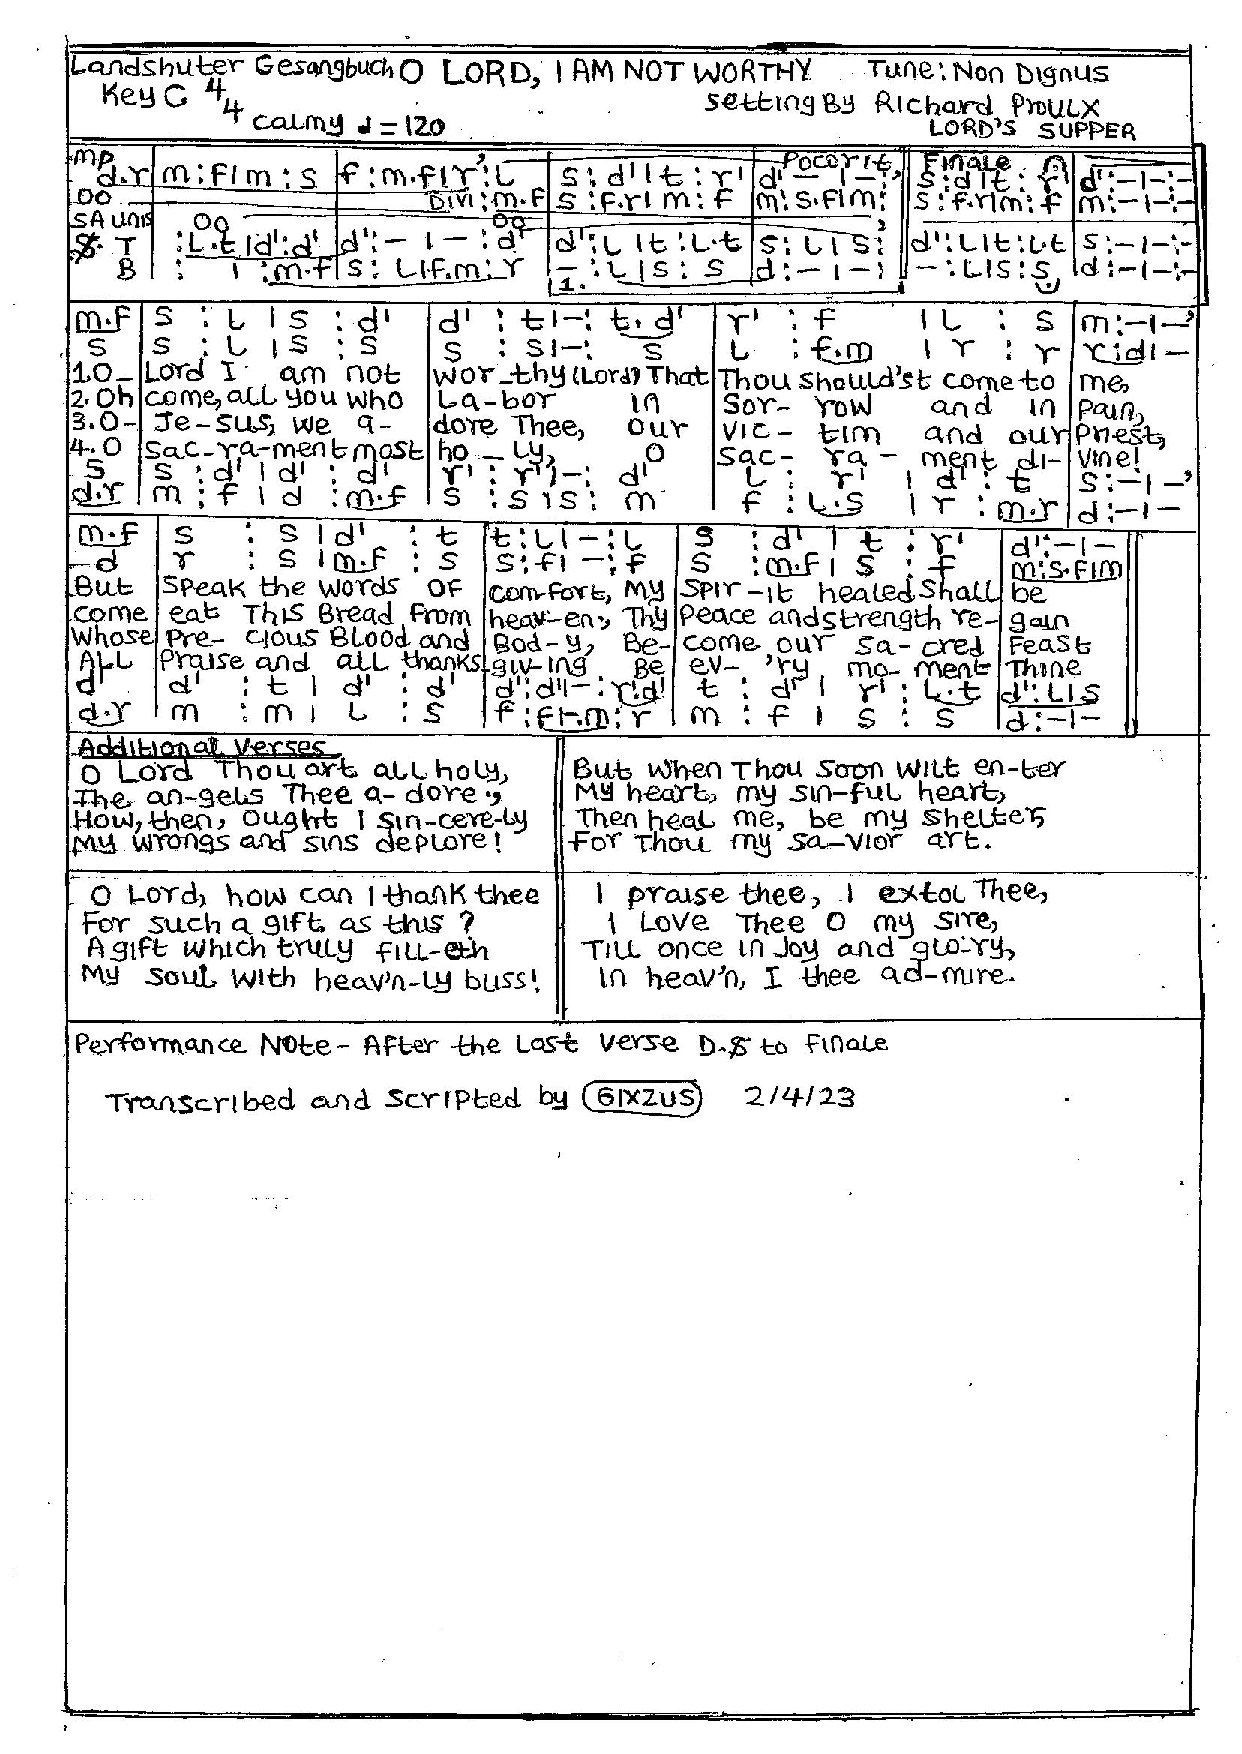 Landshuter Gesangbuch O LORD, I AM NOT WORTHY Tune: Non Dignus
Key C 4/4 Setting By Richard Proulx
calmy ♩ = 120 LORD'S SUPPER
mp Poco rit, Finale
d.r | m : f | m : s | f : m.f | r' : l | s : d' | t : r' | d' : – | – : | s : d' | t : r' | d' : – | – : –
oo Divi : m.f | s : f.r | m : f | m : s.f | m : | s : f.r | m : f | m : – | – : –
SA unis oo oo
$. T : l.t | d' : d' | d' : – | – : d' | d' : l | t : l.t | s : l | s : | d' : l | t : l.t | s : – | – : –
B : | : m.f | s : l | f.m : r | – : l | s : s | d : – | – : | – : l | s : s | d : – | – : –
1.
m.f | s : l | s : d' | d' : t | – : t.d' | r' : f | l : s | m : – | –'
s | s : l | s : s | s : s | – : s | l : f.m | r : r | r : d | –
1.O– Lord I am not wor–thy (Lord) That Thou should'st come to me,
2. Oh come, all you who La–bor in Sor– row and in pain,
3.O– Je–sus, we a– dore Thee, our vic– tim and our Priest,
4.O Sac–ra–ment most ho – ly, O Sac– ra – ment di– vine!
s | s : d' | d' : d' | r' : r' | – : d' | l : r' | d' : t | s : – | –'
d.r | m : f | d : m.f | s : s | s : m | f : l.s | r : m.r | d : – | –
m.f | s : s | d' : t | t : l | – : l | s : d' | t : r' | d' : – | –
–d | r : s | m.f : s | s : f | – : f | s : m.f | s : f | m : s.f | m
But speak the words of com–fort, My Spir –it healed Shall be
come eat This Bread From heav–en, Thy Peace and strength re– gain
Whose Pre– cious Blood and Bod–y, Be– come our sa– cred Feast
ALL Praise and all thanks giv–ing Be ev– 'ry mo– ment Thine
d' | d' : t | d' : d' | d' : d' | – : r'.d' | t : d' | r' : l.t | d' : l | s
d.r | m : m | l : s | f : f | –.m : r | m : f | s : s | d : – | –
Additional Verses
O Lord Thou art all holy,
The an–gels Thee a–dore,
How, then, ought I sin–cere–ly
My wrongs and sins deplore!
But when Thou soon wilt en–ter
My heart, my sin–ful heart,
Then heal me, be my shelter,
For Thou my sa–vior art.
O Lord, how can I thank thee
For such a gift as this?
A gift which truly fill–eth
My soul with heav'n–ly bliss!
I praise thee, I extol Thee,
I Love Thee O my sire,
Till once in joy and glo–ry,
In heav'n, I thee ad–mire.
Performance Note – After the Last Verse D.$ to Finale
Transcribed and Scripted by GIXZUS 2/4/23